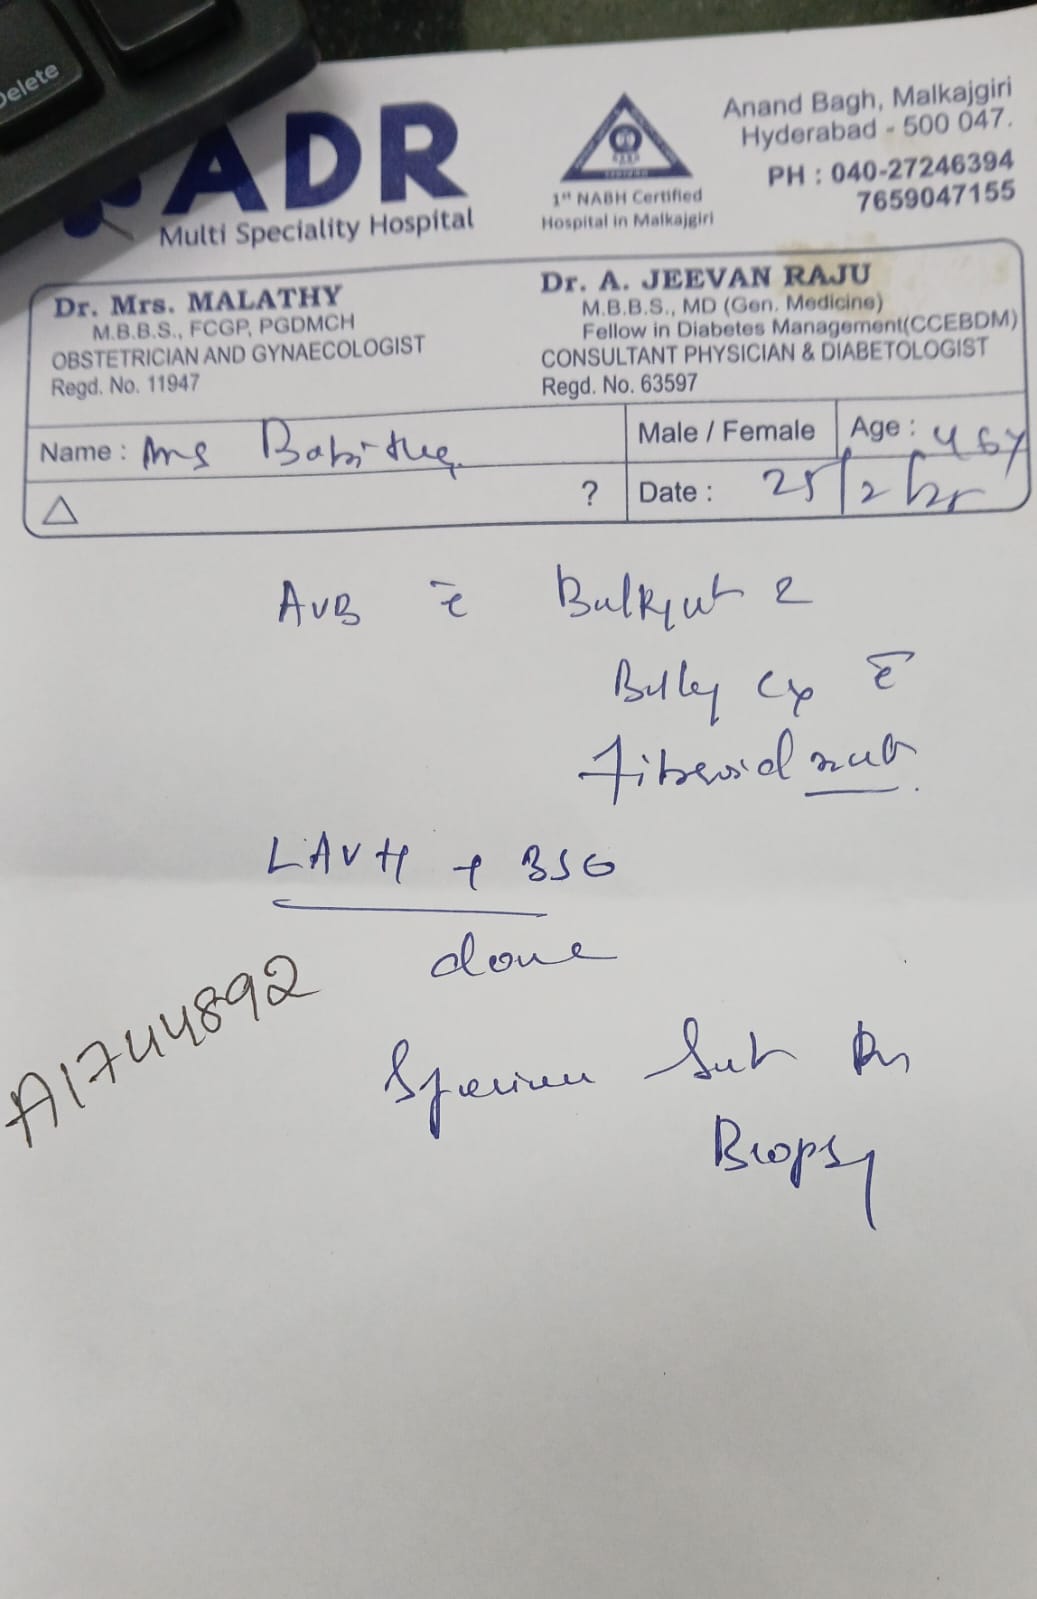 Delete
ADR
Multi Speciality Hospital
1st NABH Certified
Hospital in Malkajgiri
Anand Bagh, Malkajgiri
Hyderabad - 500 047.
PH : 040-27246394
7659047155
Dr. Mrs. MALATHY
M.B.B.S., FCGP, PGDMCH
OBSTETRICIAN AND GYNAECOLOGIST
Regd. No. 11947
Dr. A. JEEVAN RAJU
M.B.B.S., MD (Gen. Medicine)
Fellow in Diabetes Management(CCEBDM)
CONSULTANT PHYSICIAN & DIABETOLOGIST
Regd. No. 63597
Name : Mrs Babitha
Male / Female
Age : 46y
△ ?
Date : 25/2/25
AUB c̄ Bulky ut &
Bulky Cx c̄
fibroid
LAVH + BSO
done
A1744892
Specimen Sent for
Biopsy